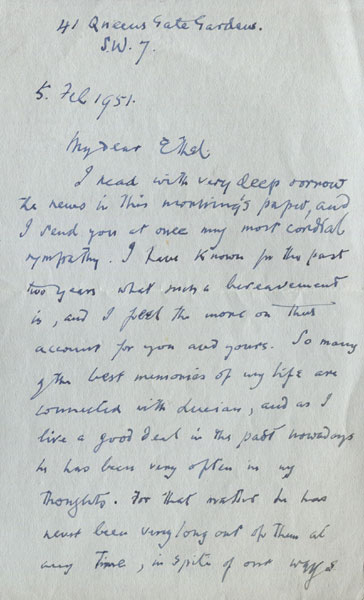 41 Queens Gate Gardens.
S.W. 7.
5. Feb 1951.
My dear Ethel.
I read with very deep sorrow
the news in this morning's paper, and
I send you at once my most cordial
sympathy. I have known for the past
two years what such a bereavement
is, and I feel the more on that
account for you and yours. So many
of the best memories of my life are
connected with Lucian, and as I
live a good deal in the past nowadays
he has been very often in my
thoughts. For that matter he has
never been very long out of them at
any time, in spite of our